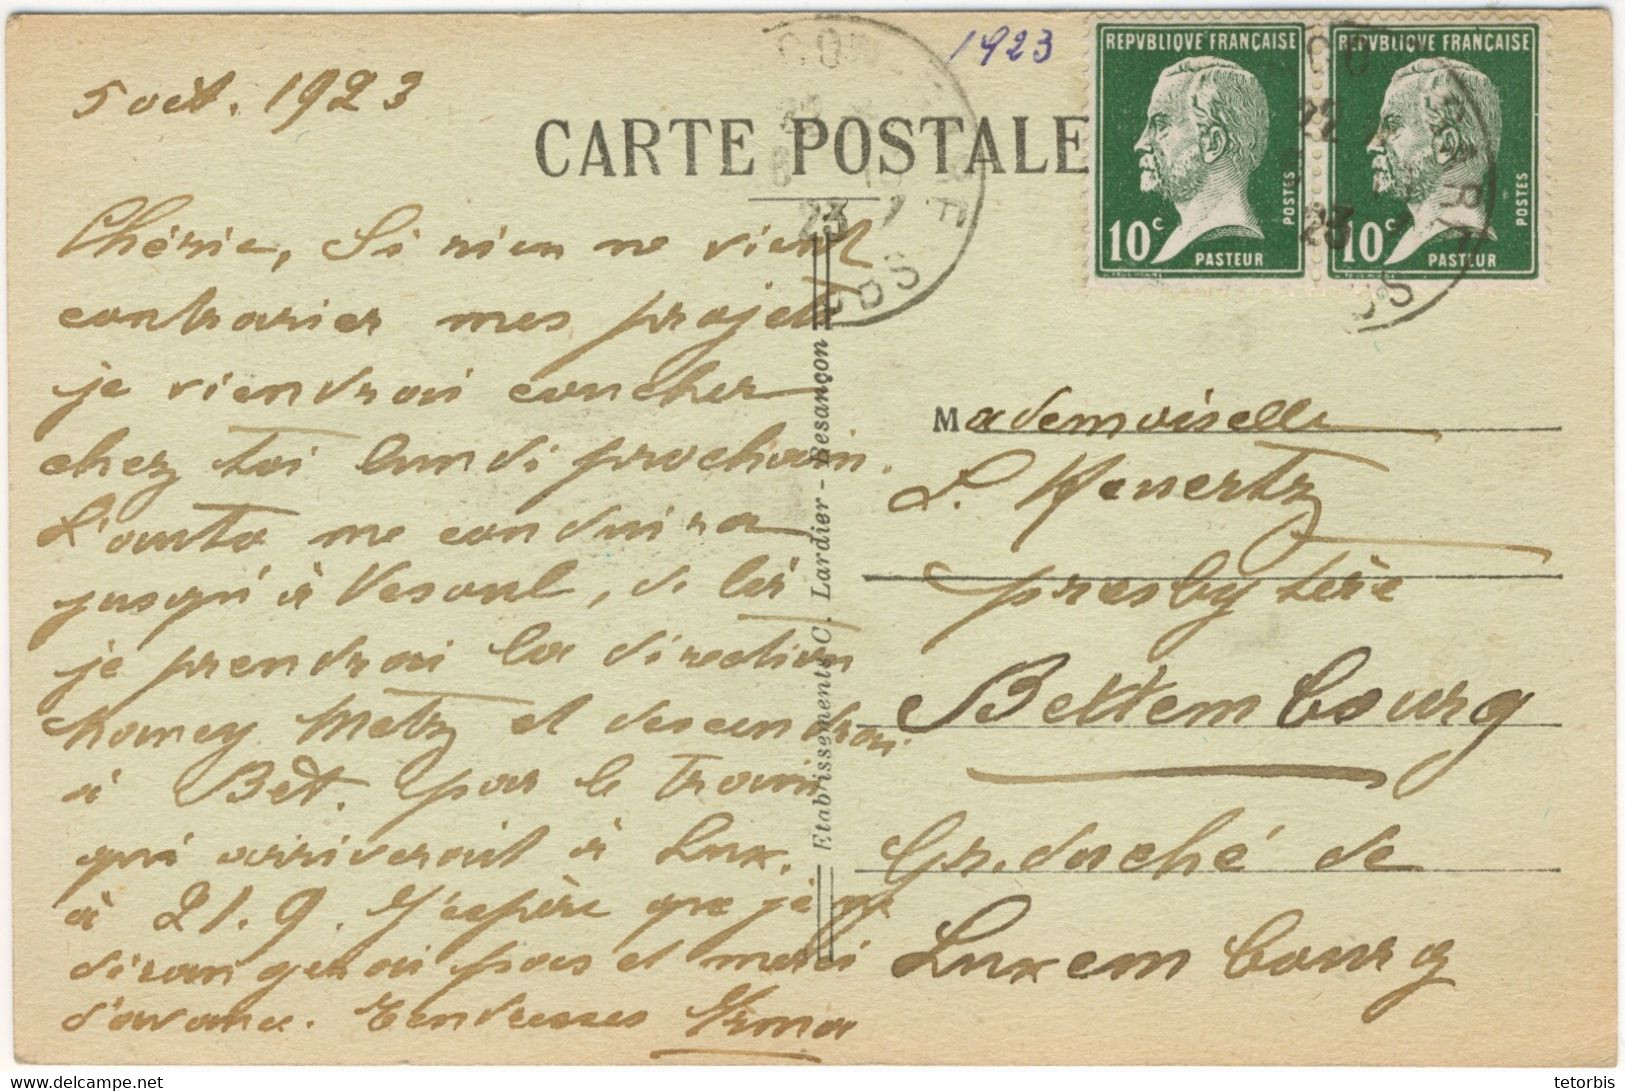 5 oct. 1923
1923
CARTE POSTALE
REPVBLIQVE FRANÇAISE
10 c
PASTEUR
POSTES
REPVBLIQVE FRANÇAISE
10 c
PASTEUR
POSTES
23
23
DOUBS
Chérie, Si rien ne vient
contrarier mes projets
je viendrai coucher
chez toi lundi prochain.
L'auto me conduira
jusqu'à Vesoul, de là
je prendrai la direction
Nancy Metz et descendrai
à Bet. par le train
qui arriverait à Lux.
à 21.9. J'espère que je ne
dérangerai pas et merci
d'avance. Tendresses Irma
Etablissements C. Lardier - Besançon
Mademoiselle
L. Kauertz
presbytère
Bettembourg
Gr. duché de
Luxembourg
delcampe.net
tetorbis